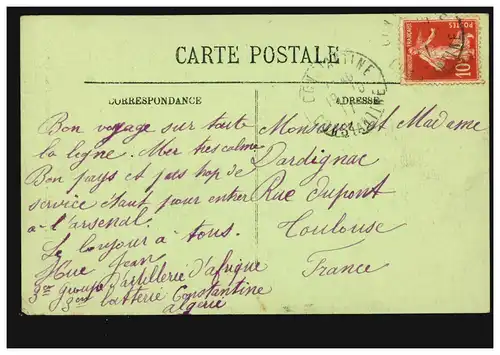 CARTE POSTALE
CORRESPONDANCE
ADRESSE
CONSTANTINE
10
Bon voyage sur toute
la ligne. Mer tres calme
Bon pays et pas trop de
service étant pour entrer
à l'arsenal.
Le bonjour à tous.
Jean
groupe d'artillerie d'afrique
batterie Constantine
algérie
Monsieur et Madame
Dardignac
Rue Dupont
Toulouse
France